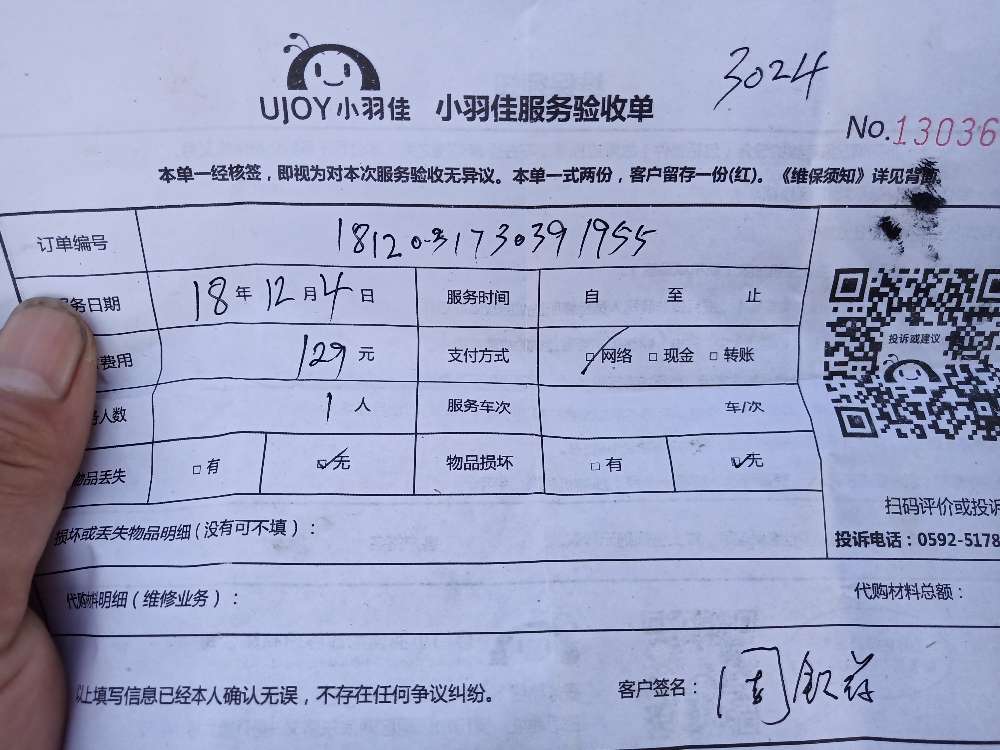 3024
UJOY小羽佳 小羽佳服务验收单
No.13036
本单一经核签，即视为对本次服务验收无异议。本单一式两份，客户留存一份(红)。《维保须知》详见背面。
订单编号 181203173039 1955
务日期 18年12月4日 服务时间 自 至 止
费用 129元 支付方式 ☑网络 □现金 □转账
投诉或建议
人数 1人 服务车次 车/次
物品丢失 □有 ☑无 物品损坏 □有 ☑无
扫码评价或投诉
损坏或丢失物品明细(没有可不填)：
投诉电话：0592-5178
代购材料明细(维修业务)：
代购材料总额：
以上填写信息已经本人确认无误，不存在任何争议纠纷。 客户签名：周